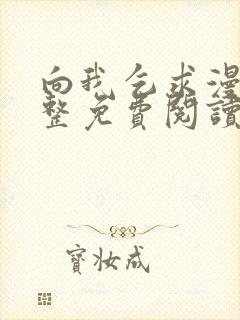 向我乞求漫
整免費閱讀
寶妝成